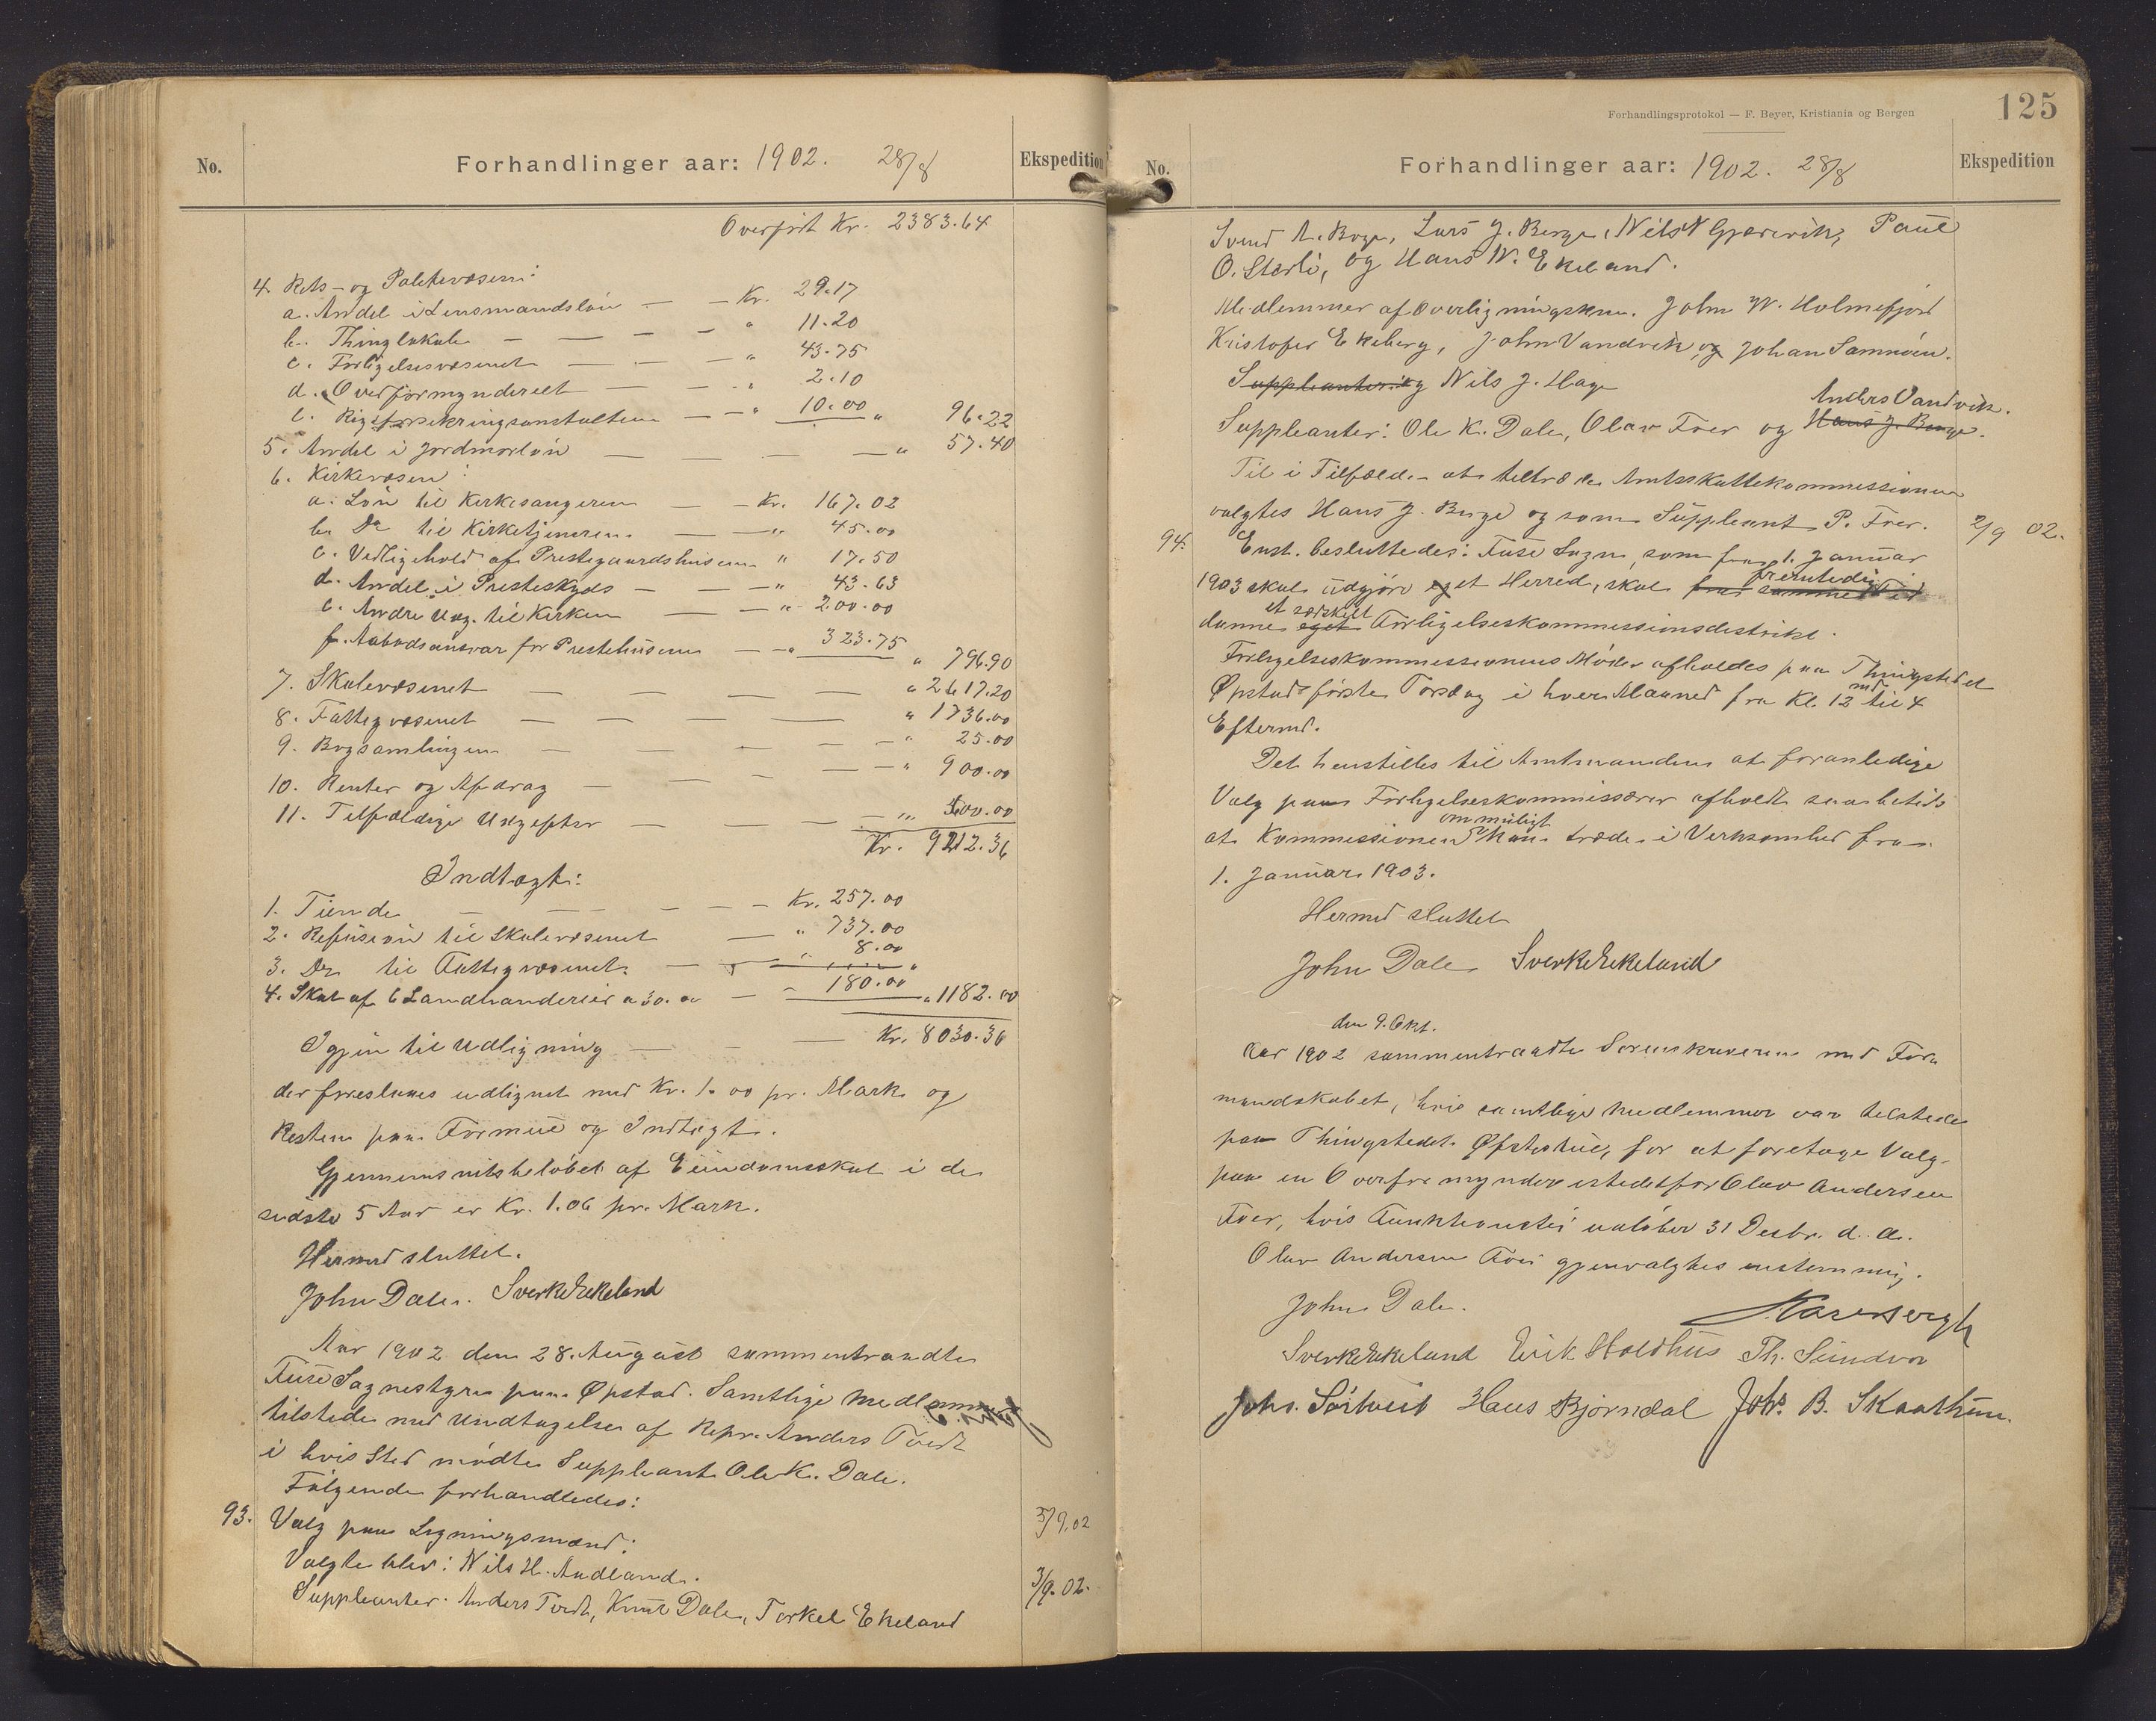 No.
Forhandlinger aar: 1902. 28/8
Ekspedition
Overført Kr. 2383.64
4. Rets- og Politivæsen:
a. Andel i Lensmandsløn — — Kr. 29.17
b. Thinglokale — — — — " 11.20
c. Forligelsesvæsenet — — — " 43.75
d. Overformynderiet — — — " 2.10
e. Rigsforsikringsanstalten — — " 10.00 " 96.22
5. Andel i Jordmorløn — — — — " 57.40
6. Kirkevæsen:
a. Løn til Kirkesangeren — — Kr. 167.02
b. Do til Kirketjeneren — — " 45.00
c. Vedligehold af Prestegaardshusene " 17.50
d. Andel i Presteskyds — — — " 43.63
e. Andre Udg. til Kirken — — " 200.00
f. Aabodsansvar for Prestehusene — — " 323.75
" 796.90
7. Skolevæsenet — — — — " 2617.20
8. Fattigvæsenet — — — — " 1736.00
9. Bogsamlingen — — — — — " 25.00
10. Renter og Afdrag — — — — — " 900.00
11. Tilfældige Udgifter — — — — " 600.00
Kr. 9212.36
Indtægt:
1. Tiende — — — — — Kr. 257.00
2. Refusion til Skolevæsenet — " 737.00
3. Do til Fattigvæsenet — " 8.00
4. Skat af 6 Landhanderier a 30.00 — " 180.00 " 1182.00
Igjen til Udligning — — — Kr. 8030.36
der foreslaaes udlignet med Kr. 1.00 pr. Mark og
Resten paa Formue og Indtægt.
Gjennemsnitsbeløbet af Eiendomsskat i de
sidste 5 Aar er Kr. 1.06 pr. Mark.
Hermed sluttet.
John Dale. Sverke Ekeland
Aar 1902 den 28. August sammentraadte
Fuse Sognestyre paa Øpstad. Samtlige Medlemmer
tilstede med Undtagelse af Repr. Anders Tvedt
i hvis Sted mødte Suppleant Ole K. Dale.
Følgende forhandledes:
93. Valg paa Ligningsmænd: 5/9.02
Valgte blev: Nils H. Audland.
Suppleanter: Anders Tvedt, Knut Dale, Torkel Ekeland 3/9.02.
Forhandlingsprotokol — F. Beyer, Kristiania og Bergen
125
No.
Forhandlinger aar: 1902. 28/8
Ekspedition
Svend A. Boge, Lars J. Berge, Nils N Gjærevik, Paul
O. Størli, og Hans N. Ekeland.
Medlemmer af Overligningskom. John W. Holmefjord
Kristofer Ekeberg, John Vandvik, og Johan Samnøen.
Suppleanter: og Nils J. Hage
Anders Vandvik.
Suppleanter: Ole K. Dale, Olav Føer og Hans J. Berge.
Til i Tilfælde at tiltræde Amtsskattekommissionen
valgtes Hans J. Berge og som Suppleant P. Føer. 2/9 02.
94. Enst. besluttedes: Fuse Sogn, som fra 1. Januar
1903 skal udgjøre eget Herred, skal fra samme Tid
fremtidig
et særskilt
danne eget Forligelseskommissionsdistrikt.
Forligelseskommissionens Møder afholdes paa Thingstedet
Øpstad første Torsdag i hver Maaned fra Kl. 12 md til 4
Eftermd.
Det henstilles til Amtmanden at foranledige
Valg paa Forligelseskommissærer afholdt saa betids
at Kommissionen om muligt kan træde i Verksomhed fra
1. Januar 1903.
Hermed sluttet
John Dale Sverke Ekeland
den 9. Okt.
Aar 1902 sammentraadte Sorenskriveren med For-
mandskabet, hvis samtlige Medlemmer var tilstede
paa Thingstedet Øfstestue, for at foretage Valg
paa en Overformynder istedetfor Olav Andersen
Føer, hvis Funktionstid udløber 31 Desbr. d. a.
Olav Andersen Føer gjenvalgtes enstemmig.
John Dale.
Sverke Ekeland Eirik Holdhus Th. Sundvor
Johs. Sørtveit Hans Bjørndal Johs. B. Skaathun.